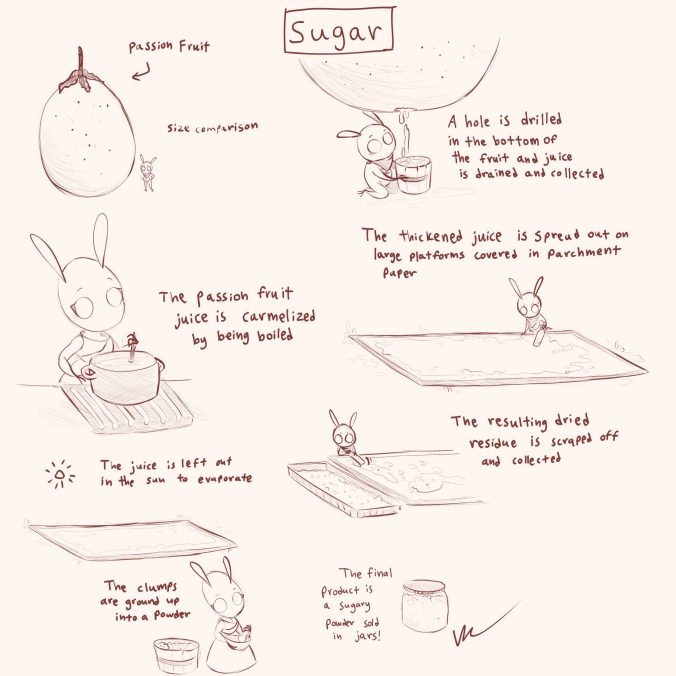 Sugar
Passion Fruit
size comparison
A hole is drilled
in the bottom of
the fruit and juice
is drained and collected
The passion fruit
juice is carmelized
by being boiled
The thickened juice is spread out on
large platforms covered in parchment
paper
The juice is left out
in the sun to evaporate
The resulting dried
residue is scraped off
and collected
The clumps
are ground up
into a powder
The final
product is
a sugary
powder sold
in jars!